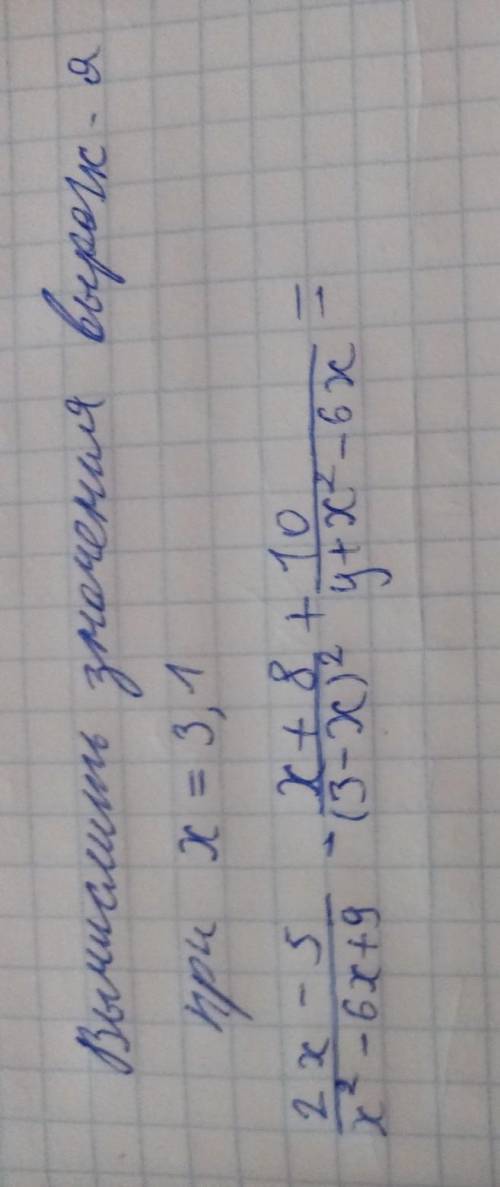 Вычислить значения выраж-я
при x = 3,1
\frac{2x-5}{x^2-6x+9} - \frac{x+8}{(3-x)^2} + \frac{10}{y+x^2-6x} =